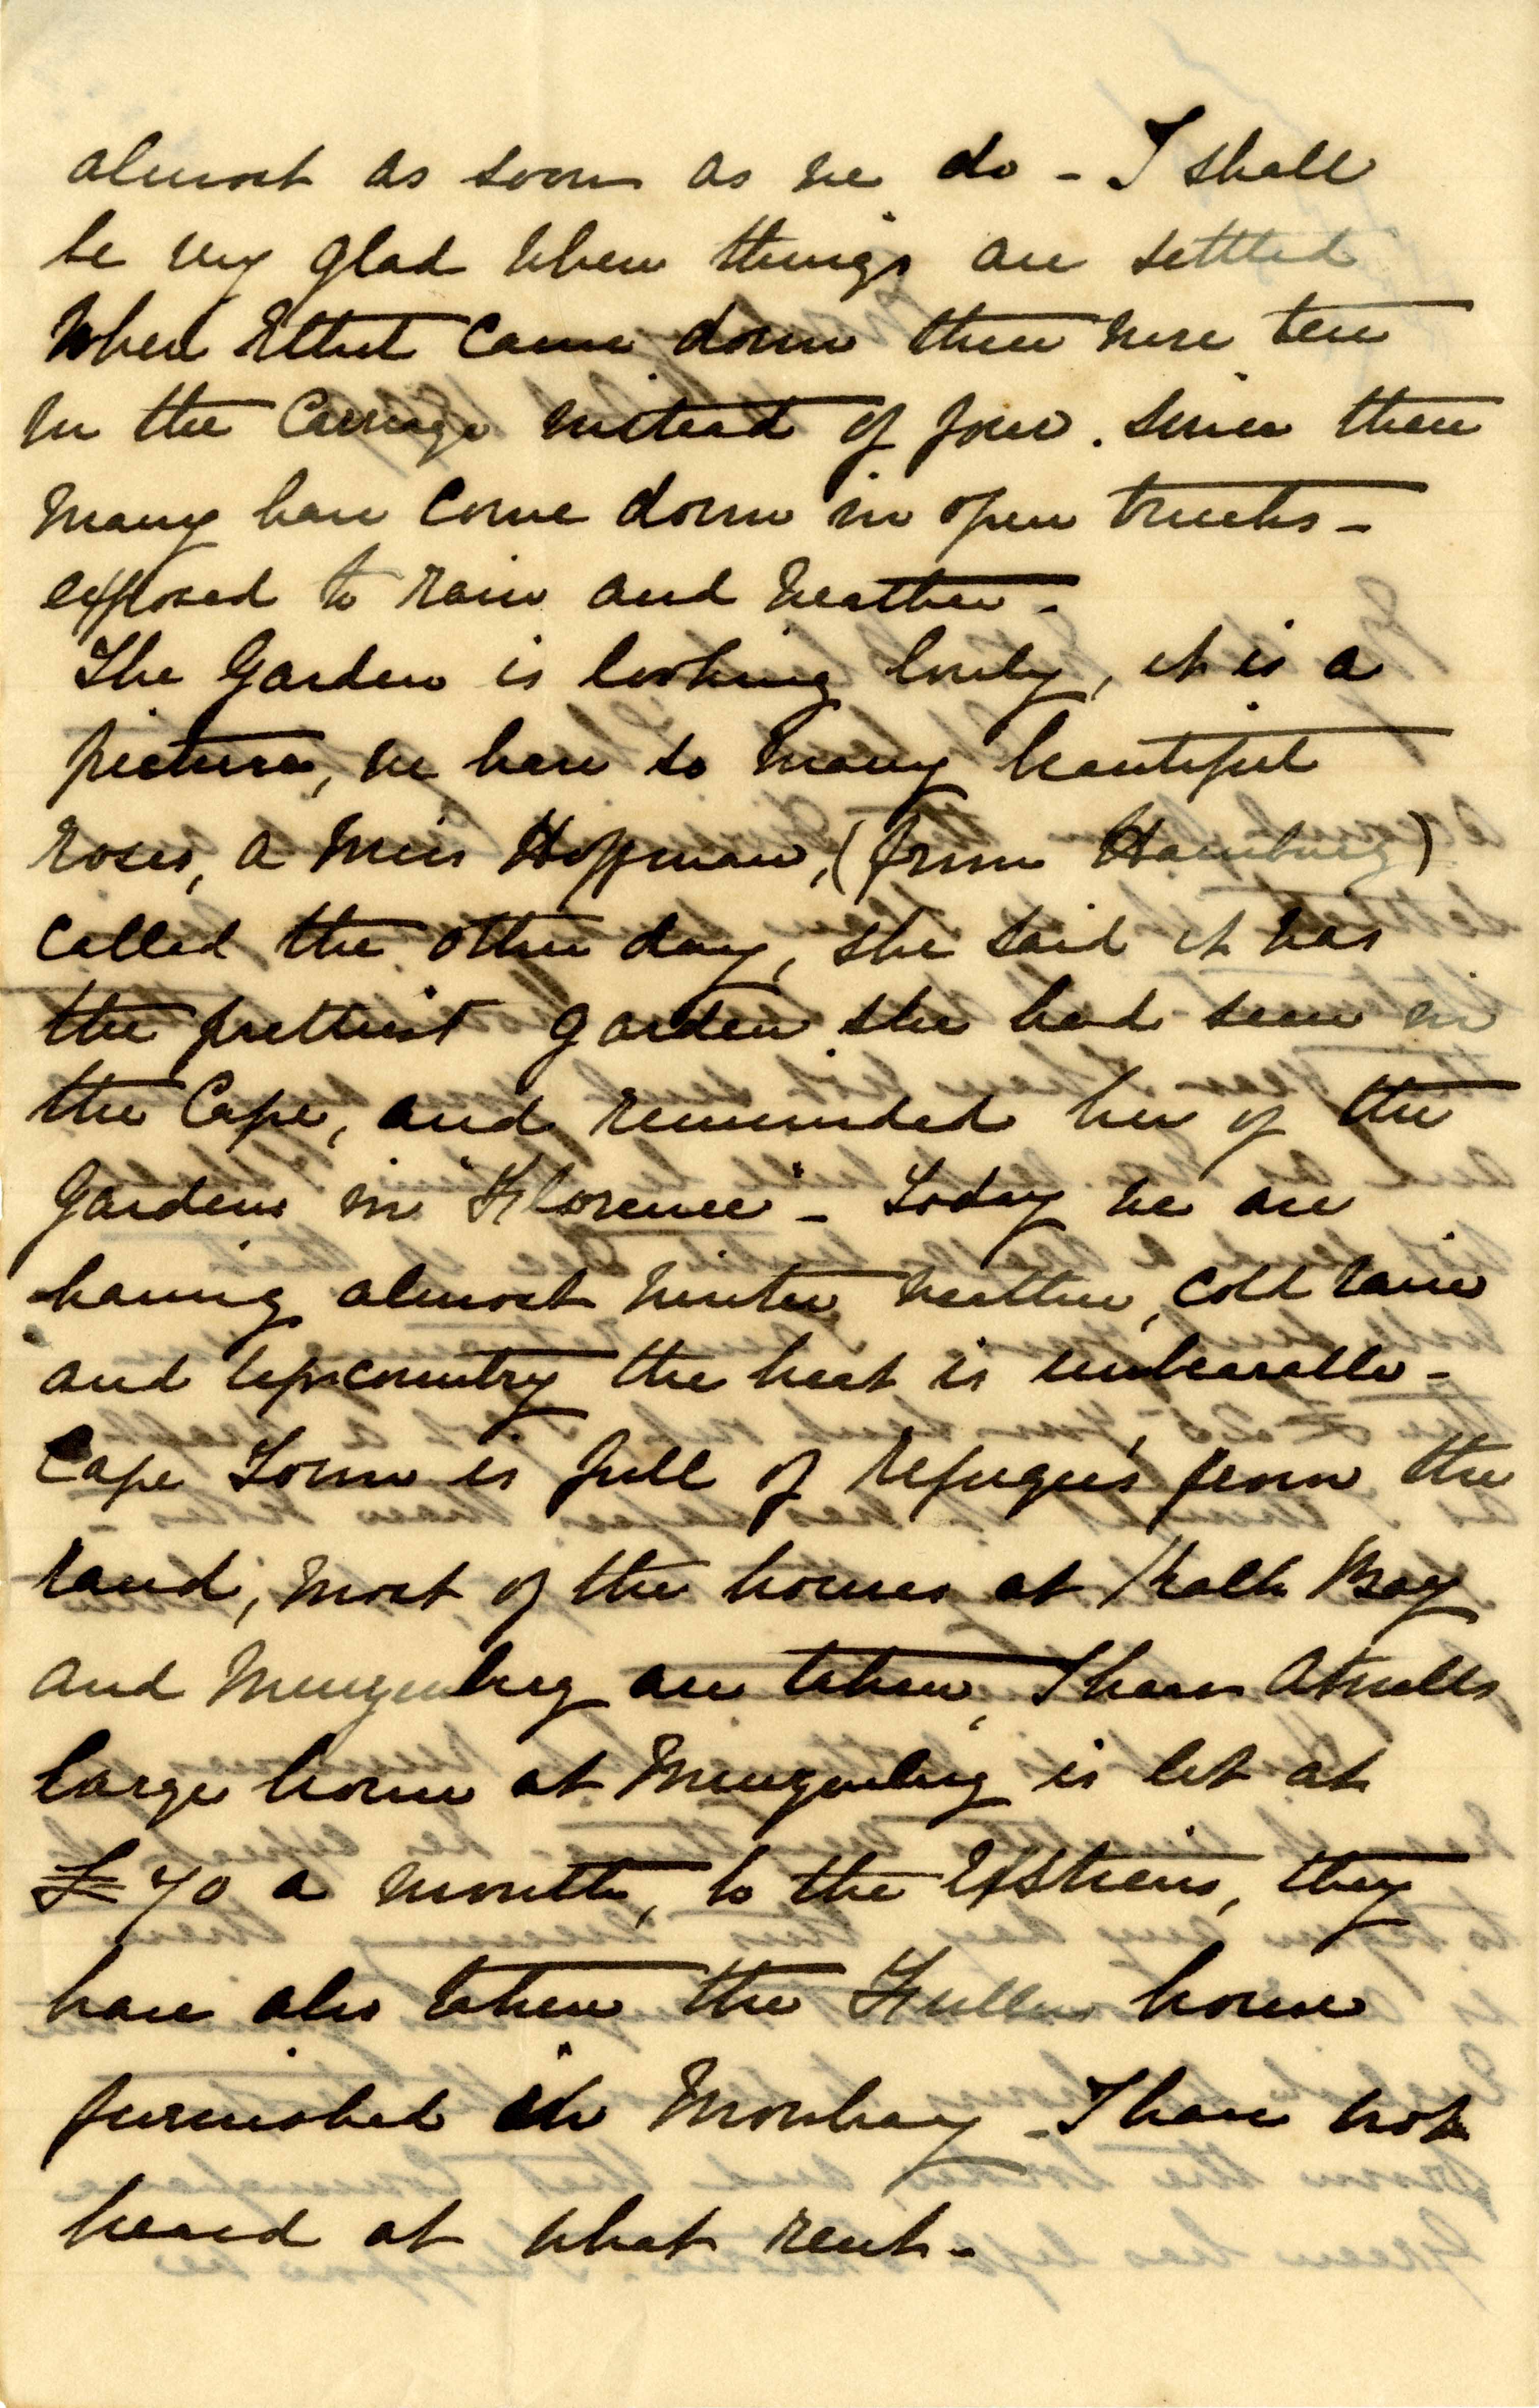 almost as soon as we do - I shall
be very glad when things are settled
When Ethel came down there were ten
in the Carriage instead of four. Since then
many have come down in open trucks -
exposed to rain and weather -
The Garden is looking lovely, it is a
picture, we have so many beautiful
roses, a Miss Hoffman, (from Hamburg)
called the other day, she said it was
the prettiest garden she had seen in
the Cape, and reminded her of the
Gardens in "Florence" - Today we are
having almost winter weather, cold rain
and upcountry the heat is unbearable -
Cape Town is full of refugee's from the
Rand, most of the houses at Kalk Bay
and Muizenberg are taken, I hear Atwells
large house at Muizenberg is let at
£70 a month, to the Epsteins, they
have also taken the Fuller house
furnished in Mowbray - I have not
heard at what rent -